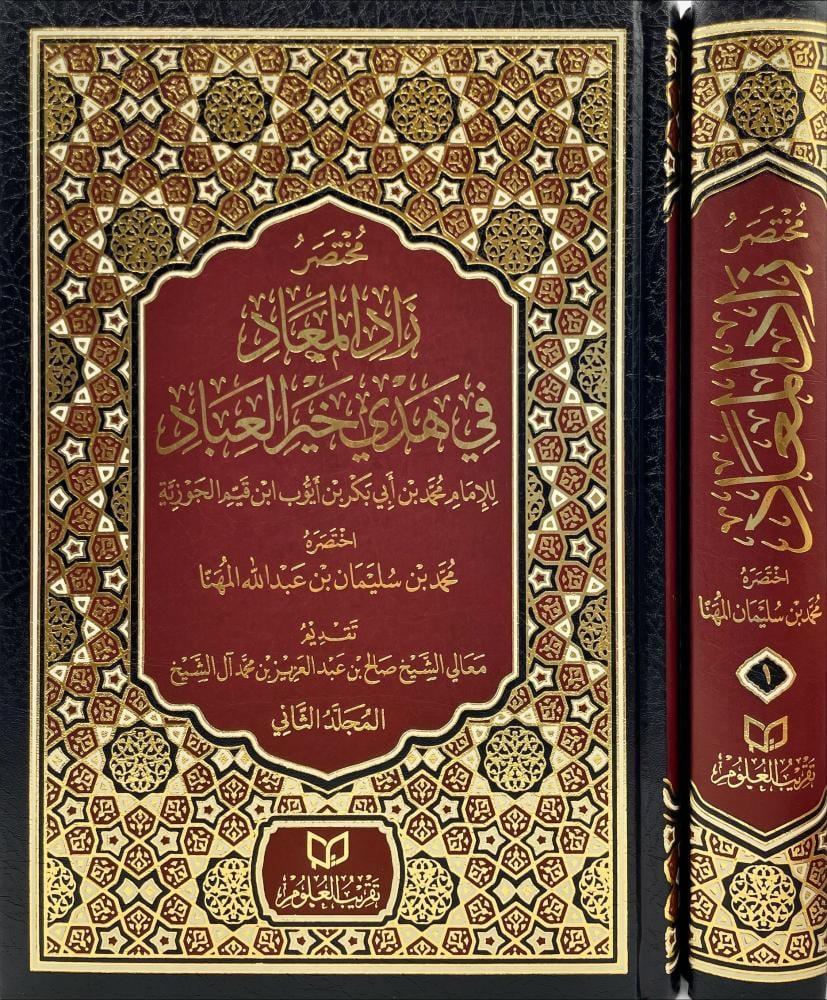 مُخْتَصَرُ
زَادِ المَعَادِ
فِي هَدْيِ خَيْرِ العِبَادِ
لِلإِمَامِ مُحَمَّد بْن أَبِي بَكْر بْن أَيُّوب ابْن قَيِّمِ الجَوْزِيَّةِ
اخْتَصَرَهُ
مُحَمَّد بْن سُلَيْمَان بْن عَبْدِ اللهِ المُهَنَّا
تَقْدِيمُ
مَعَالِي الشَّيْخ صَالِح بْن عَبْدِ العَزِيز بْن مُحَمَّد آل الشَّيْخ
المُجَلَّدُ الثَّانِي
تَقْرِيبُ العُلُومِ
مُخْتَصَرُ
زَادِ المَعَادِ
اخْتَصَرَهُ
مُحَمَّد بْن سُلَيْمَان المُهَنَّا
١
تَقْرِيبُ العُلُومِ